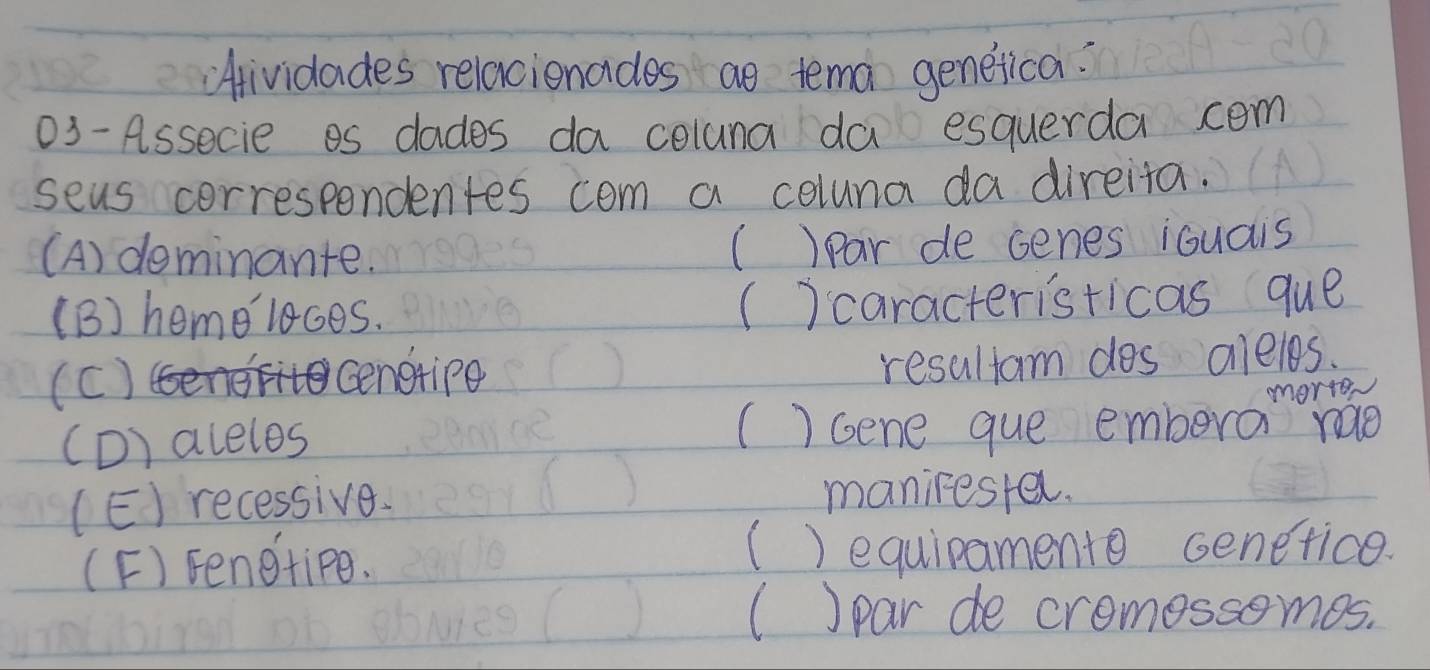 Atividades relacionados ao tema genética:
03-Associe os dados da coluna da esquerda com
seus correspondentes com a coluna da direita.
(A) dominante. ( ) par de genes iguais
(B) homólogos. ( ) características que
resultam dos alelos.
(C) Genótipo
morto
(D) alelos ( ) Gene que embora não
(E) recessivo. manifesta.
(F) Fenótipo. ( ) equipamento genético.
( ) par de cromossomos.